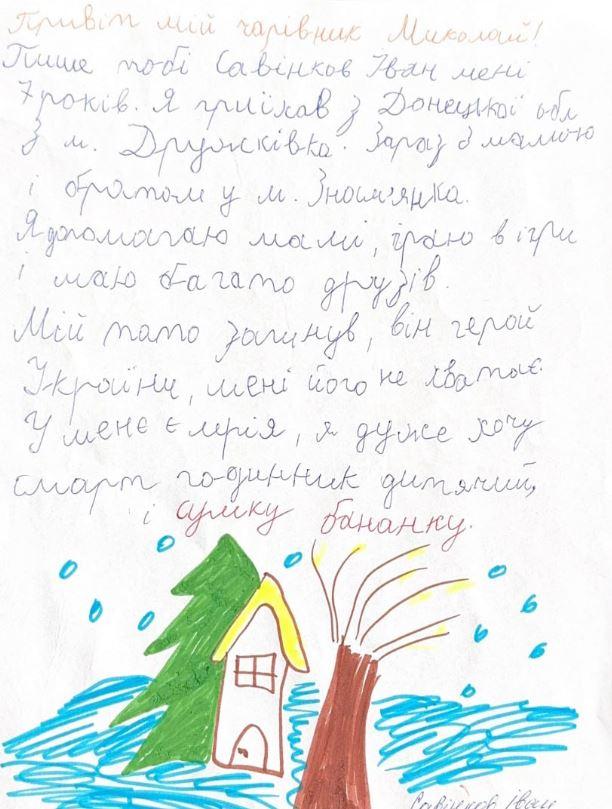 Привіт мій чарівник Миколай!
Пише тобі Савінков Іван мені
7 років. Я приїхав з Донецької обл
З м. Дружківка. Зараз з мамою
і братом у м. Знам'янка.
Я допомагаю мамі, граю в ігри
і маю багато друзів.
Мій тато загинув, він герой
України, мені його не хватає.
У мене є мрія, я дуже хочу
смарт годинник дитячий,
і сумку бананку.
Савінков Іван